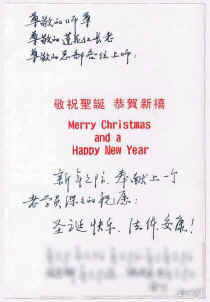 尊敬的师尊
尊敬的莲花红长老
尊敬的总部各位上师：
敬祝聖誕 恭賀新禧
Merry Christmas
and a
Happy New Year
新年之际，奉献上一个
老学员深深的祝愿：
圣诞快乐，法体安康！